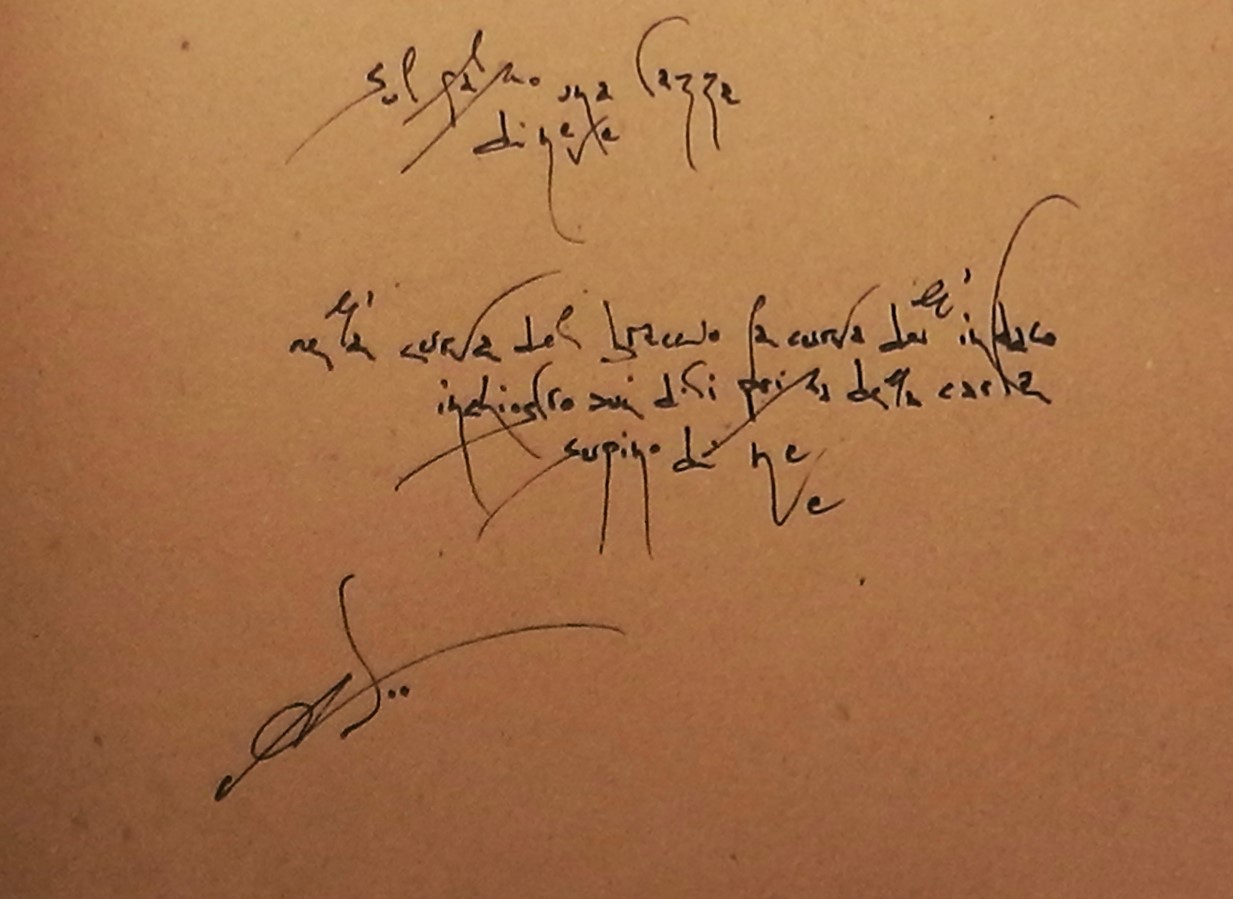 sul palmo una tazza
di neve
nella curva del braccio la curva dell'indaco
inchiostro sui diti prima della carta
supino di neve